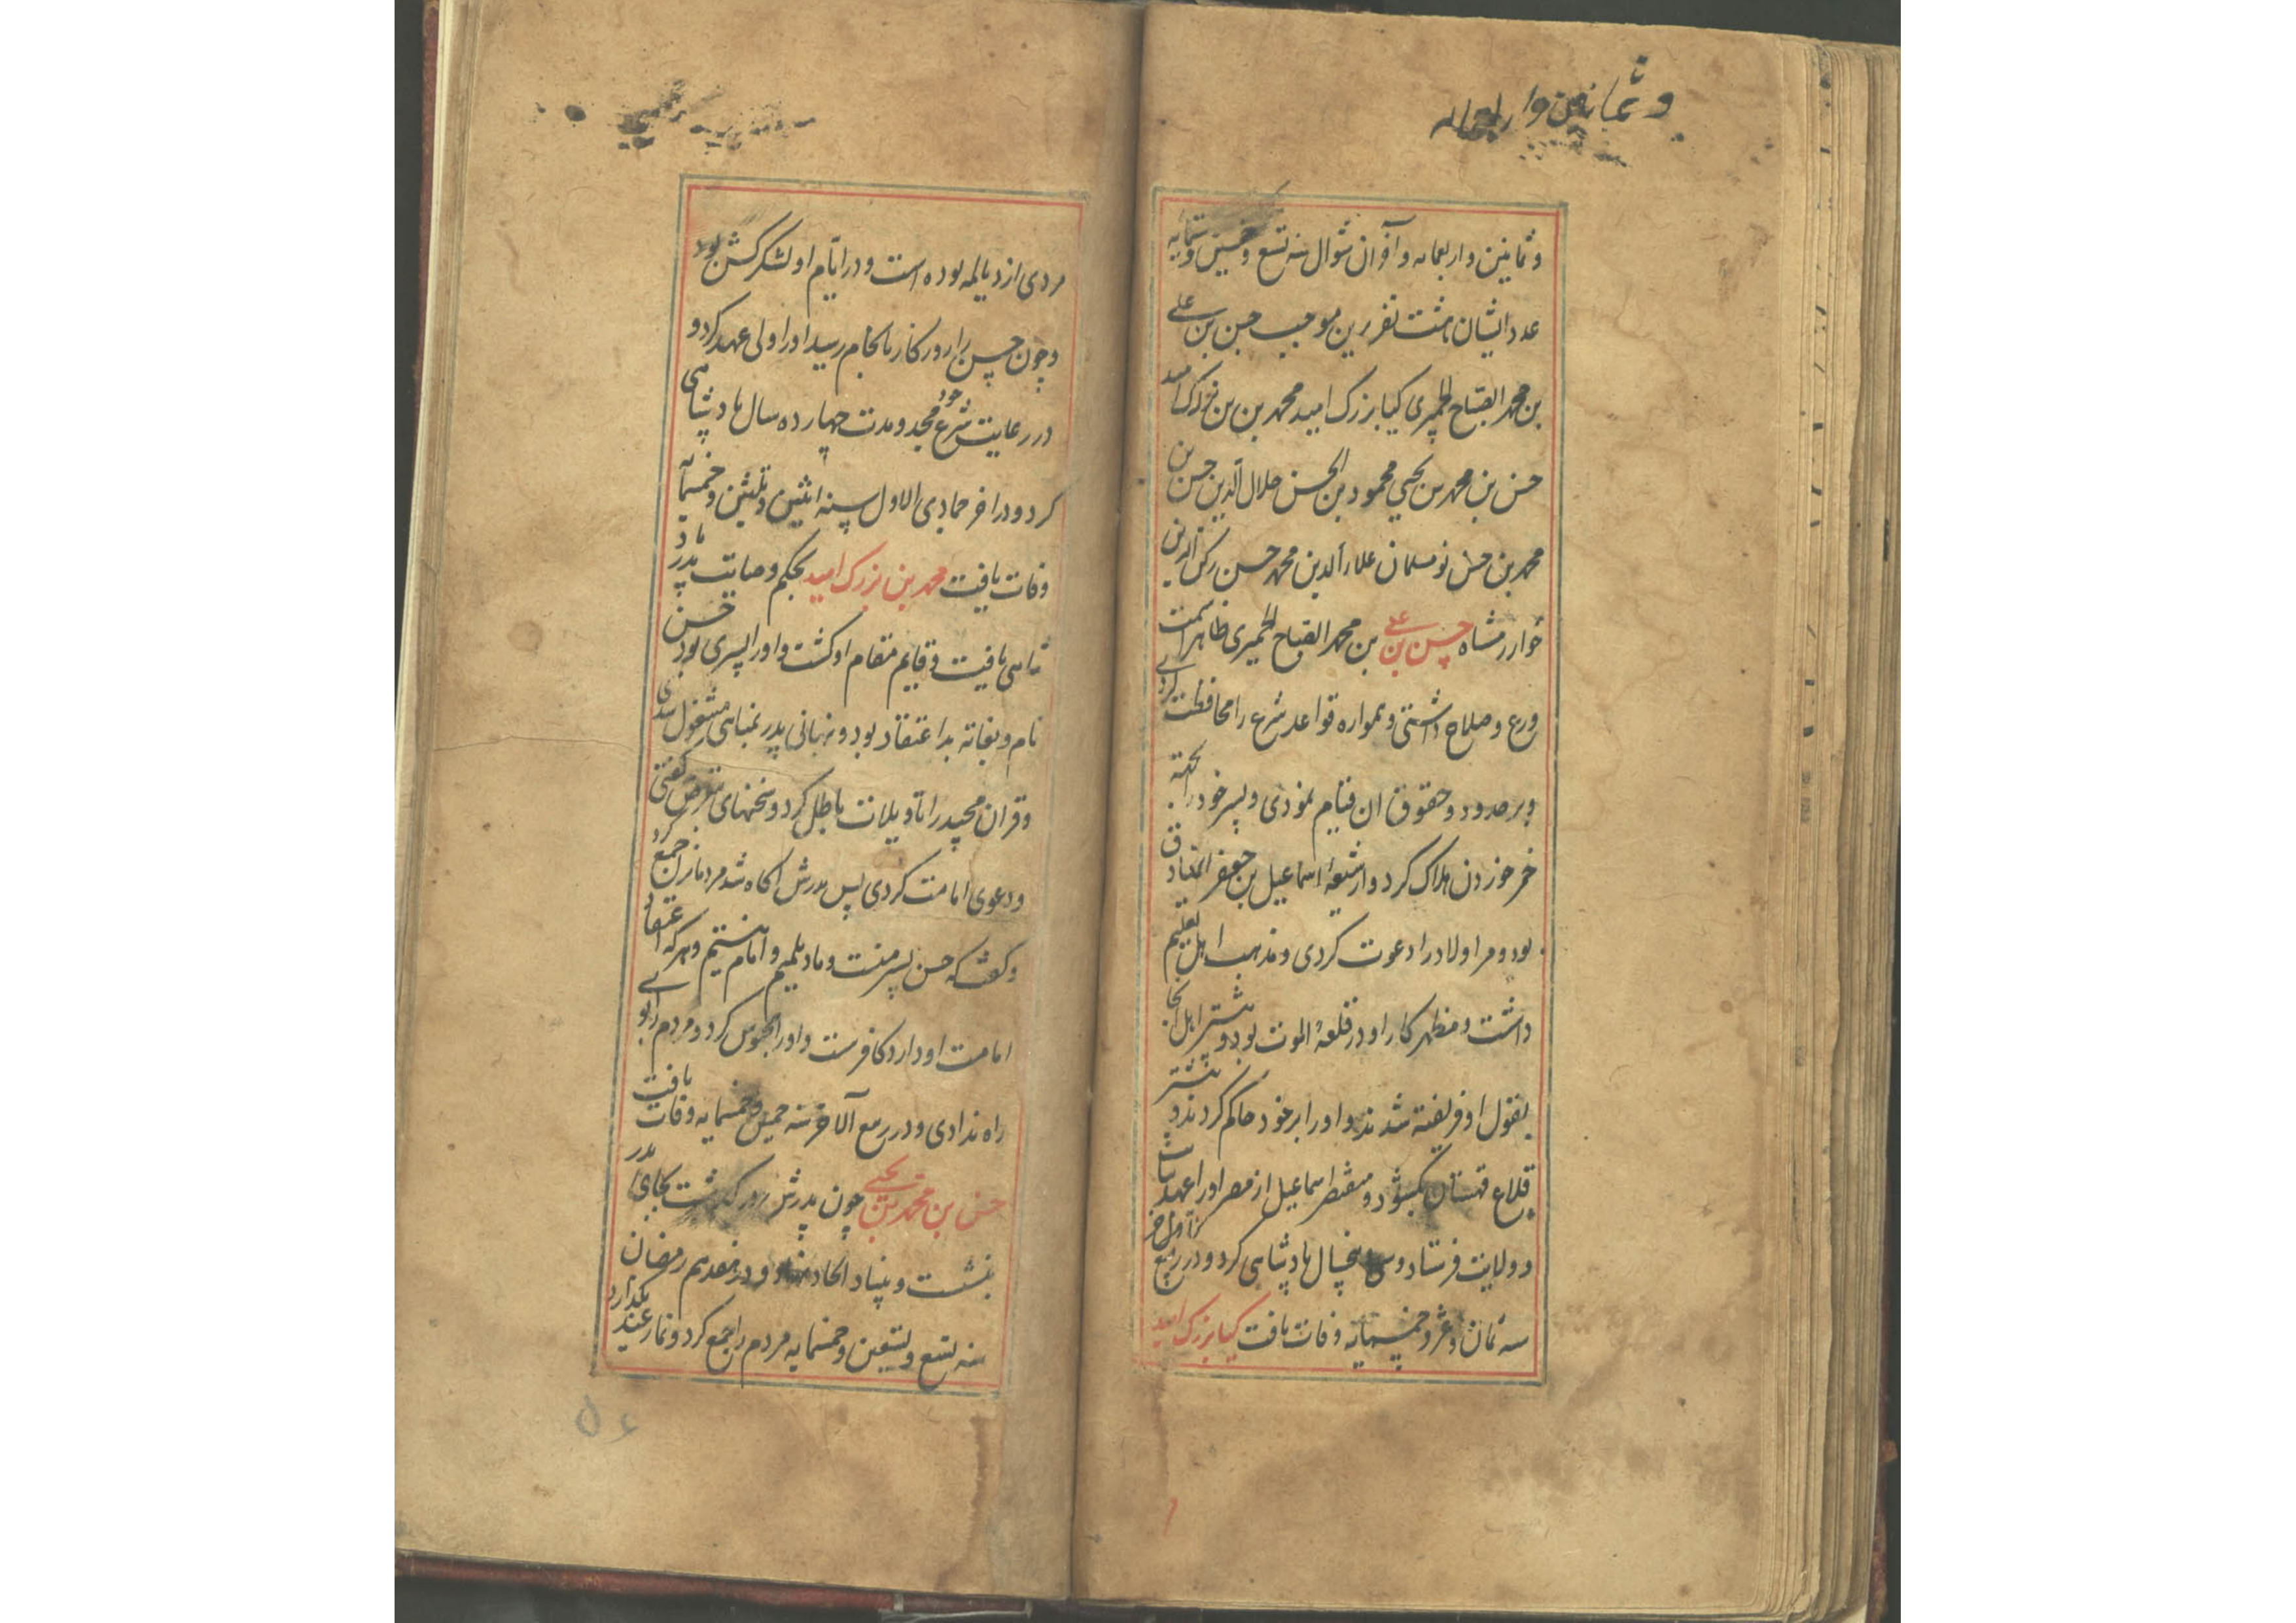 و ثمانین و اربعمایه
و ثمانین و اربعمایه و آخر آن شوال سنه تسع و خمسین و ستمایه
عدد ایشان هشت نفر برین موجب حسن بن علی
بن محمد الصباح الحمیری کیا بزرک امید محمد بن بزرک امید
حسن بن محمد بن یحیی محمود بن الحسن جلال الدین حسن بن
محمد بن حسن نومسلمان علاء الدین محمد حسن رکن الدین
خوارزمشاه حسن بن علی بن محمد الصباح الحمیری ظاهرا سمت
ورع و صلاح داشتی و همواره قواعد شرع را محافظت کردی
و بر حدود و حقوق ان قیام نمودی و پسر خود را بجهة
خمر خوردن هلاک کرد و از شیعهٔ اسماعیل بن جعفر الصادق
بود و مر اولاد را دعوت کردی و مذهب اهل تعلیم
داشت و مظهر کار او در قلعهٔ الموت بود و بیشتر اهل انجا
بقول او فریفته شدند و او را بر خود حاکم کردند و بیشتر
قلاع قهستان بکشود و مستنصر اسماعیل از مصر او را عهد
و ولایت فرستاد و سی پنجسال پادشاهی کرد و در ربیع الآخر
سنه ثمان و عشر و خمسمایه وفات یافت کیا بزرک امید
مردی از دیالمه بوده است و در ایام او لشکر کش بود
و چون حسن را روزکار بانجام رسید او را ولی عهد کرد و
در رعایت شرع مجد و مدت چهارده سال پادشاهی
کرد و در اخر جمادی الاول سنه اثنین و ثلثین و خمسمایه
وفات یافت محمد بن بزرک امید بحکم وصایت پدر پاد
شاهی یافت و قایم مقام او کشت و او را پسری بود حسن
نام و بغایة بد اعتقاد بود و نهانی پدر بمناهی مشغول شدی
و قران مجید را تاویلات باطل کرد و سخنهای کفتی
و دعوی امامت کردی پس پدرش اکاه شد مردمانرا جمع کرد
و کفت که حسن پسر منست و ما دیلمیم و امام نیستیم و هر که اعتقاد
امامت او دارد کافرست و او را محبوس کرد و مردم را بوی
راه ندادی و در ربیع الآخر سنه خمس و خمسمایه وفات یافت
حسن بن محمد بن یحیی چون پدرش در کذشت بجای پدر
بنشست و بنیاد الحاد نهاد و در هفدهم رمضان
سنه تسع و تسعین و خمسمایه مردم را جمع کرد و نماز عید بکذارد